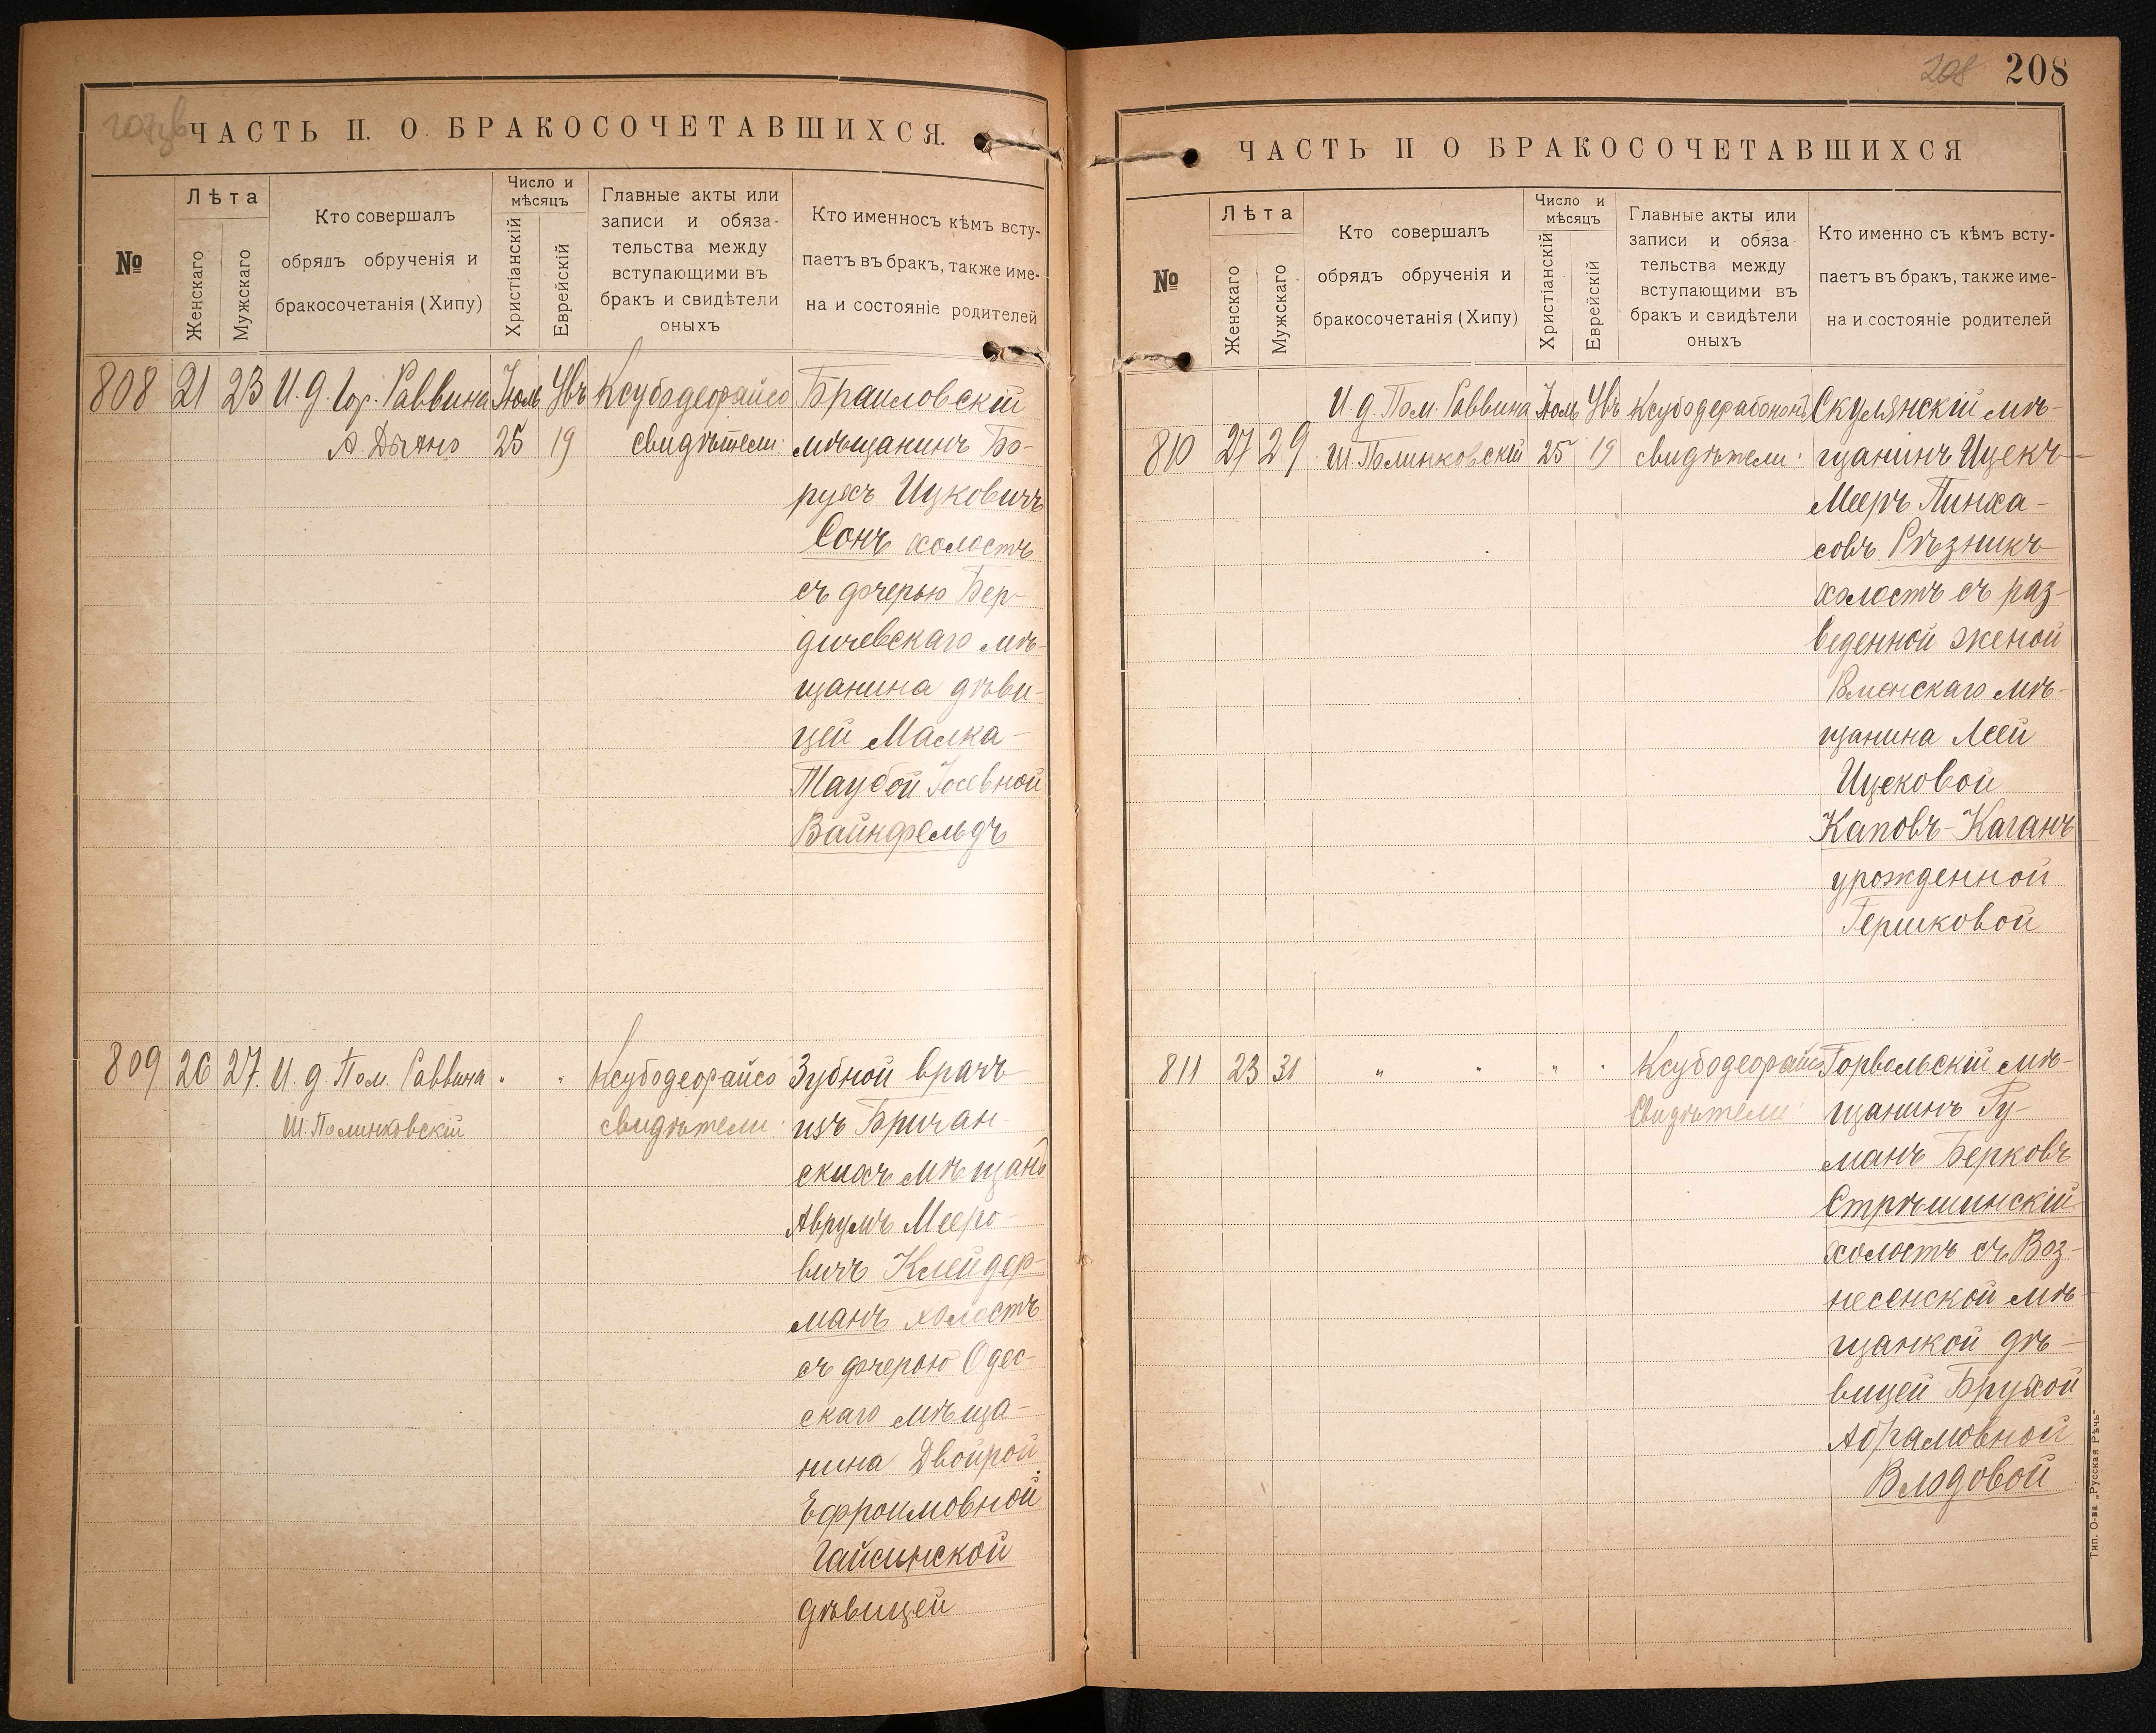 ЧАСТЬ II. О БРАКОСОЧЕТАВШИХСЯ.
№
Лѣта
Женскаго
Мужскаго
Кто совершалъ
обрядъ обрученія и
бракосочетанія (Хипу)
Число и
мѣсяцъ
Христіанскій
Еврейскій
Главные акты или
записи и обяза-
тельства между
вступающими въ
бракъ и свидѣтели
оныхъ
Кто именносъ кѣмъ всту-
паетъ въ бракъ, также име-
на и состояніе родителей
808 21 23 И. д. Гор. Раввина Іюль Увъ Ксубодеорайсо Браиловскій
25 19 свидѣтели: мѣщанинъ Бо-
рухъ Ицковичъ
Сонъ холостъ
съ дочерью Бер-
дичевскаго мѣ-
щанина дѣви-
цей Малка-
Таубой Іосевной
Вайнфельдъ
809 26 27. И. д. Пом. Раввина " " Ксубодеорайсо Зубной врачъ
Ш. Полинковскій свидѣтели: изъ Бричан-
скихъ мѣщанъ
Аврумъ Мееро-
вичъ Клейдер-
манъ холостъ
съ дочерью Одес-
скаго мѣща-
нина Двойрой
Ефроимовной
Гайсинской
дѣвицей
208 208
ЧАСТЬ II О БРАКОСОЧЕТАВШИХСЯ
№
Лѣта
Женскаго
Мужскаго
Кто совершалъ
обрядъ обрученія и
бракосочетанія (Хипу)
Число и
мѣсяцъ
Христіанскій
Еврейскій
Главные акты или
записи и обяза
тельства между
вступающими въ
бракъ и свидѣтели
оныхъ
Кто именно съ кѣмъ всту-
паетъ въ бракъ, также име-
на и состояніе родителей
И. д. Пом. Раввина Іюль Увъ Скулянскій мѣ-
810 27 29 Ш. Полинковскій 25 19 свидѣтели: щанинъ Ицекъ-
Мееръ Пинха-
совъ Рѣзникъ
холостъ съ раз-
веденной женой
мѣ-
щанина Леей
Ицековой
Каповъ-Каганъ
урожденной
Гершковой
811 23 31 " " " " Ксубодеорайсо Горвольскій мѣ-
Свидѣтели: щанинъ Гу-
манъ Берковъ
Стрѣшинскій
холостъ съ Воз-
несенской мѣ-
щанкой дѣ-
вицей Брухой
Абрамовной
Влодовой
Тип. О-ва „Русская Рѣчь"